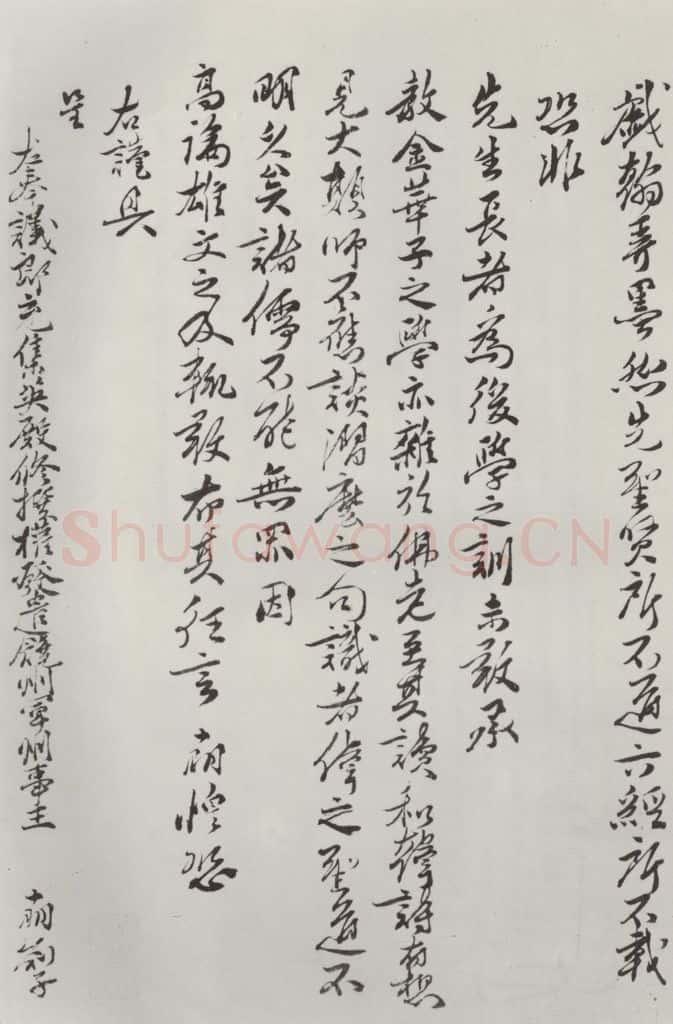 戲翰弄墨然先聖賢所不道六經所不載
恐非
先生長者為後學之訓未敢承
教金華子之學亦雜於佛老至其讀和聲詩有想
見大顛師不應談溜麼之句識者偉之聖道不
明久矣諸儒不能無罪因
高論雄文之及輒敢布其狂言 朝惶恐
右謹具
呈
左奉議郎充集英殿修撰權發遣饒州軍州事主 朝劄子
Shufawang.CN